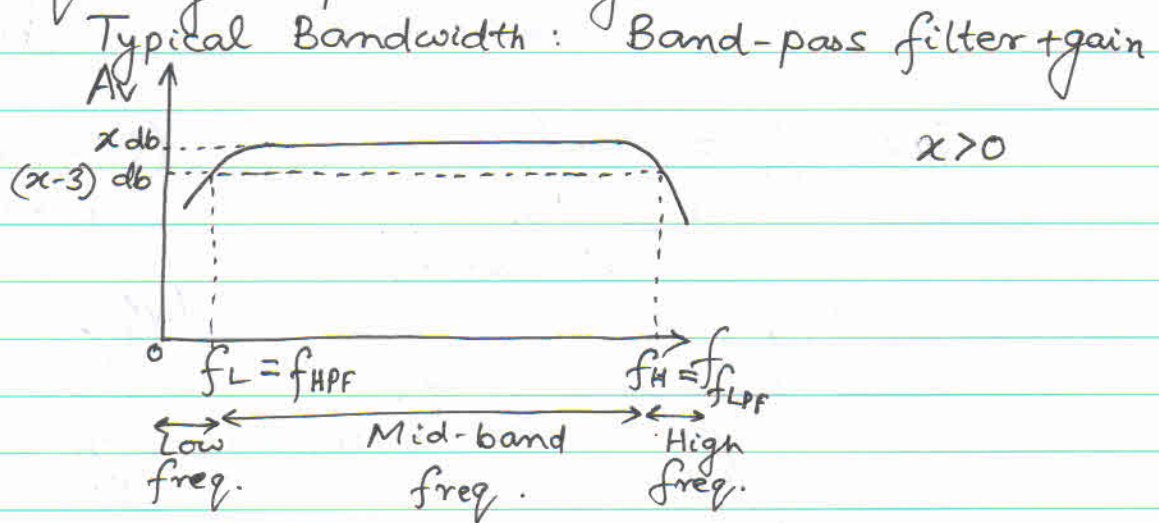 Typical Bandwidth: Band-pass filter + gain
Av
x db
x>0
(x-3) db
0
fL = fHPF
fH = fLPF
f
Low freq.
Mid-band freq.
High freq.